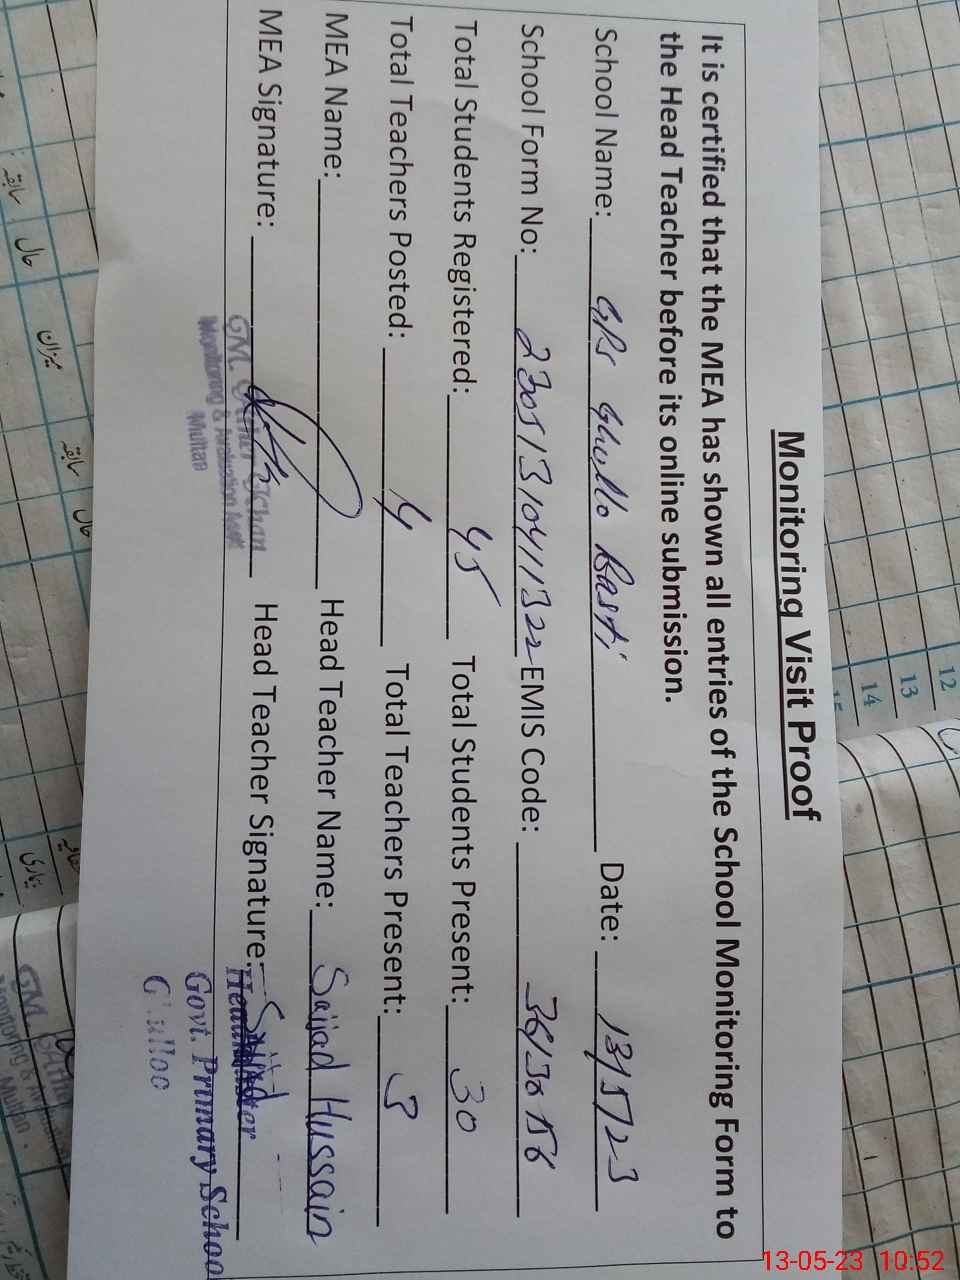 Monitoring Visit Proof
It is certified that the MEA has shown all entries of the School Monitoring Form to
the Head Teacher before its online submission.
School Name: GPS Ghullo Basti Date: 13/5/23
School Form No: 23051310411322 EMIS Code: 36130156
Total Students Registered: 45 Total Students Present: 30
Total Teachers Posted: 4 Total Teachers Present: 3
MEA Name: Head Teacher Name: Sajjad Hussain
MEA Signature: Head Teacher Signature: Sajjad
GM. Khan
Monitoring & Evaluation
Multan
Headmaster
Govt. Primary School
12
13
14
15
سابقہ
حال
میزان
سابقہ
حال
بیماری
GM.
Monitoring &
Multan
13-05-23 10:52